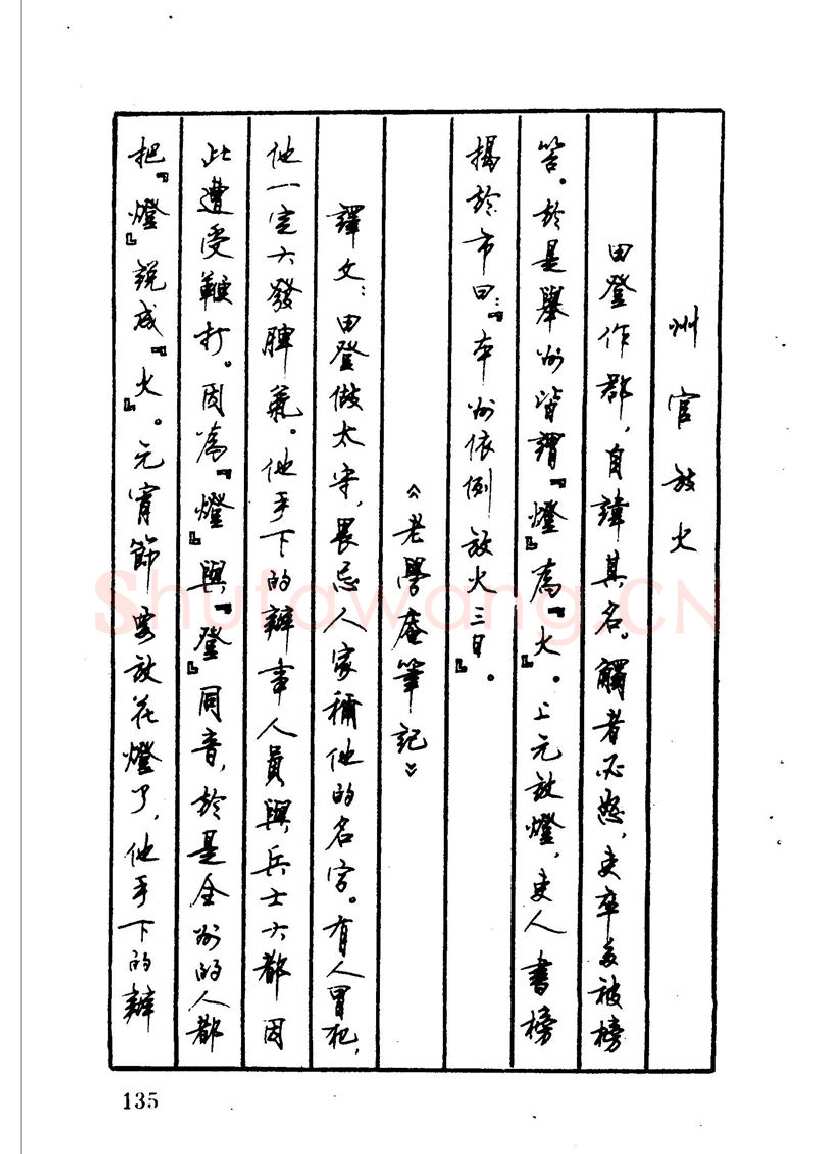 州官放火
田登作郡，自諱其名。觸者必怒，吏卒多被榜
笞。於是舉州皆謂『燈』為『火』。上元放燈，吏人書榜
揭於市曰：『本州依例放火三日』。
《老學庵筆記》
譯文：田登做太守，畏忌人家稱他的名字。有人冒犯，
他一定大發脾氣。他手下的辦事人員與兵士大都因
此遭受鞭打。因為『燈』與『登』同音，於是全州的人都
把『燈』說成『火』。元宵節要放花燈了，他手下的辦
135
Shufawang.CN